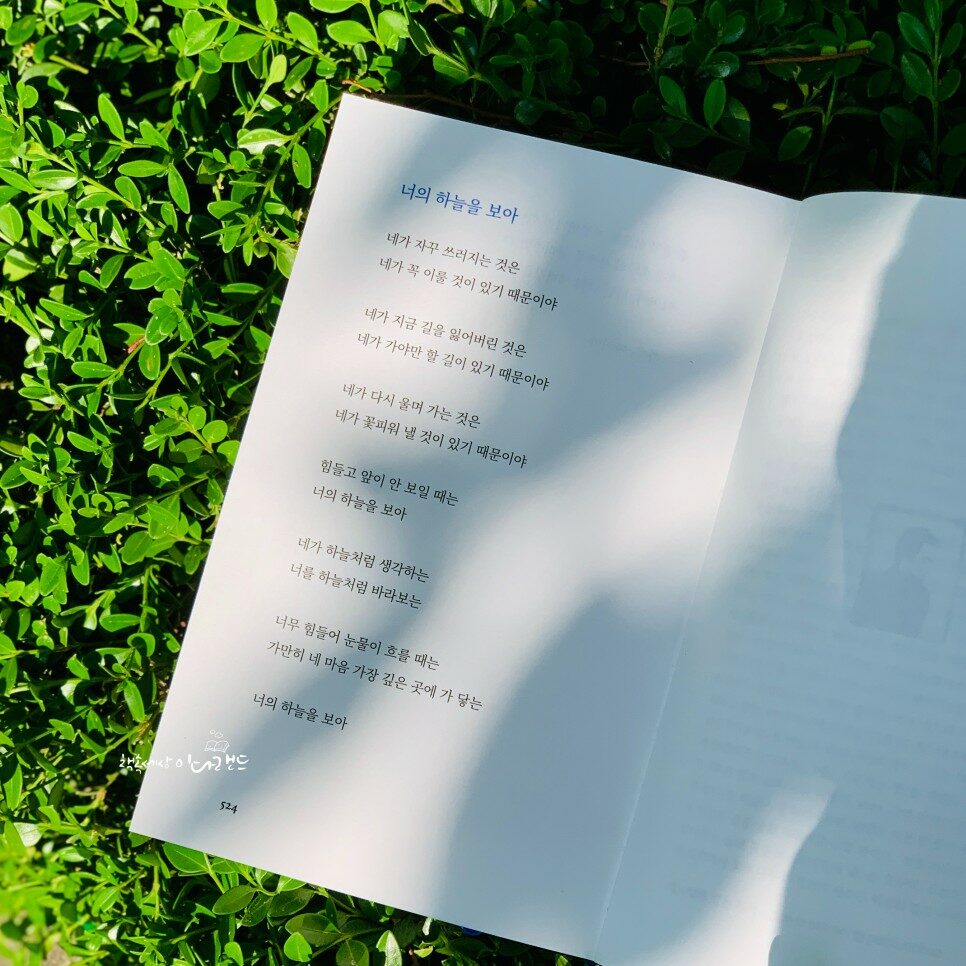 너의 하늘을 보아
네가 자꾸 쓰러지는 것은
네가 꼭 이룰 것이 있기 때문이야
네가 지금 길을 잃어버린 것은
네가 가야만 할 길이 있기 때문이야
네가 다시 울며 가는 것은
네가 꽃피워 낼 것이 있기 때문이야
힘들고 앞이 안 보일 때는
너의 하늘을 보아
네가 하늘처럼 생각하는
너를 하늘처럼 바라보는
너무 힘들어 눈물이 흐를 때는
가만히 네 마음 가장 깊은 곳에 가 닿는
너의 하늘을 보아
책속세상
524